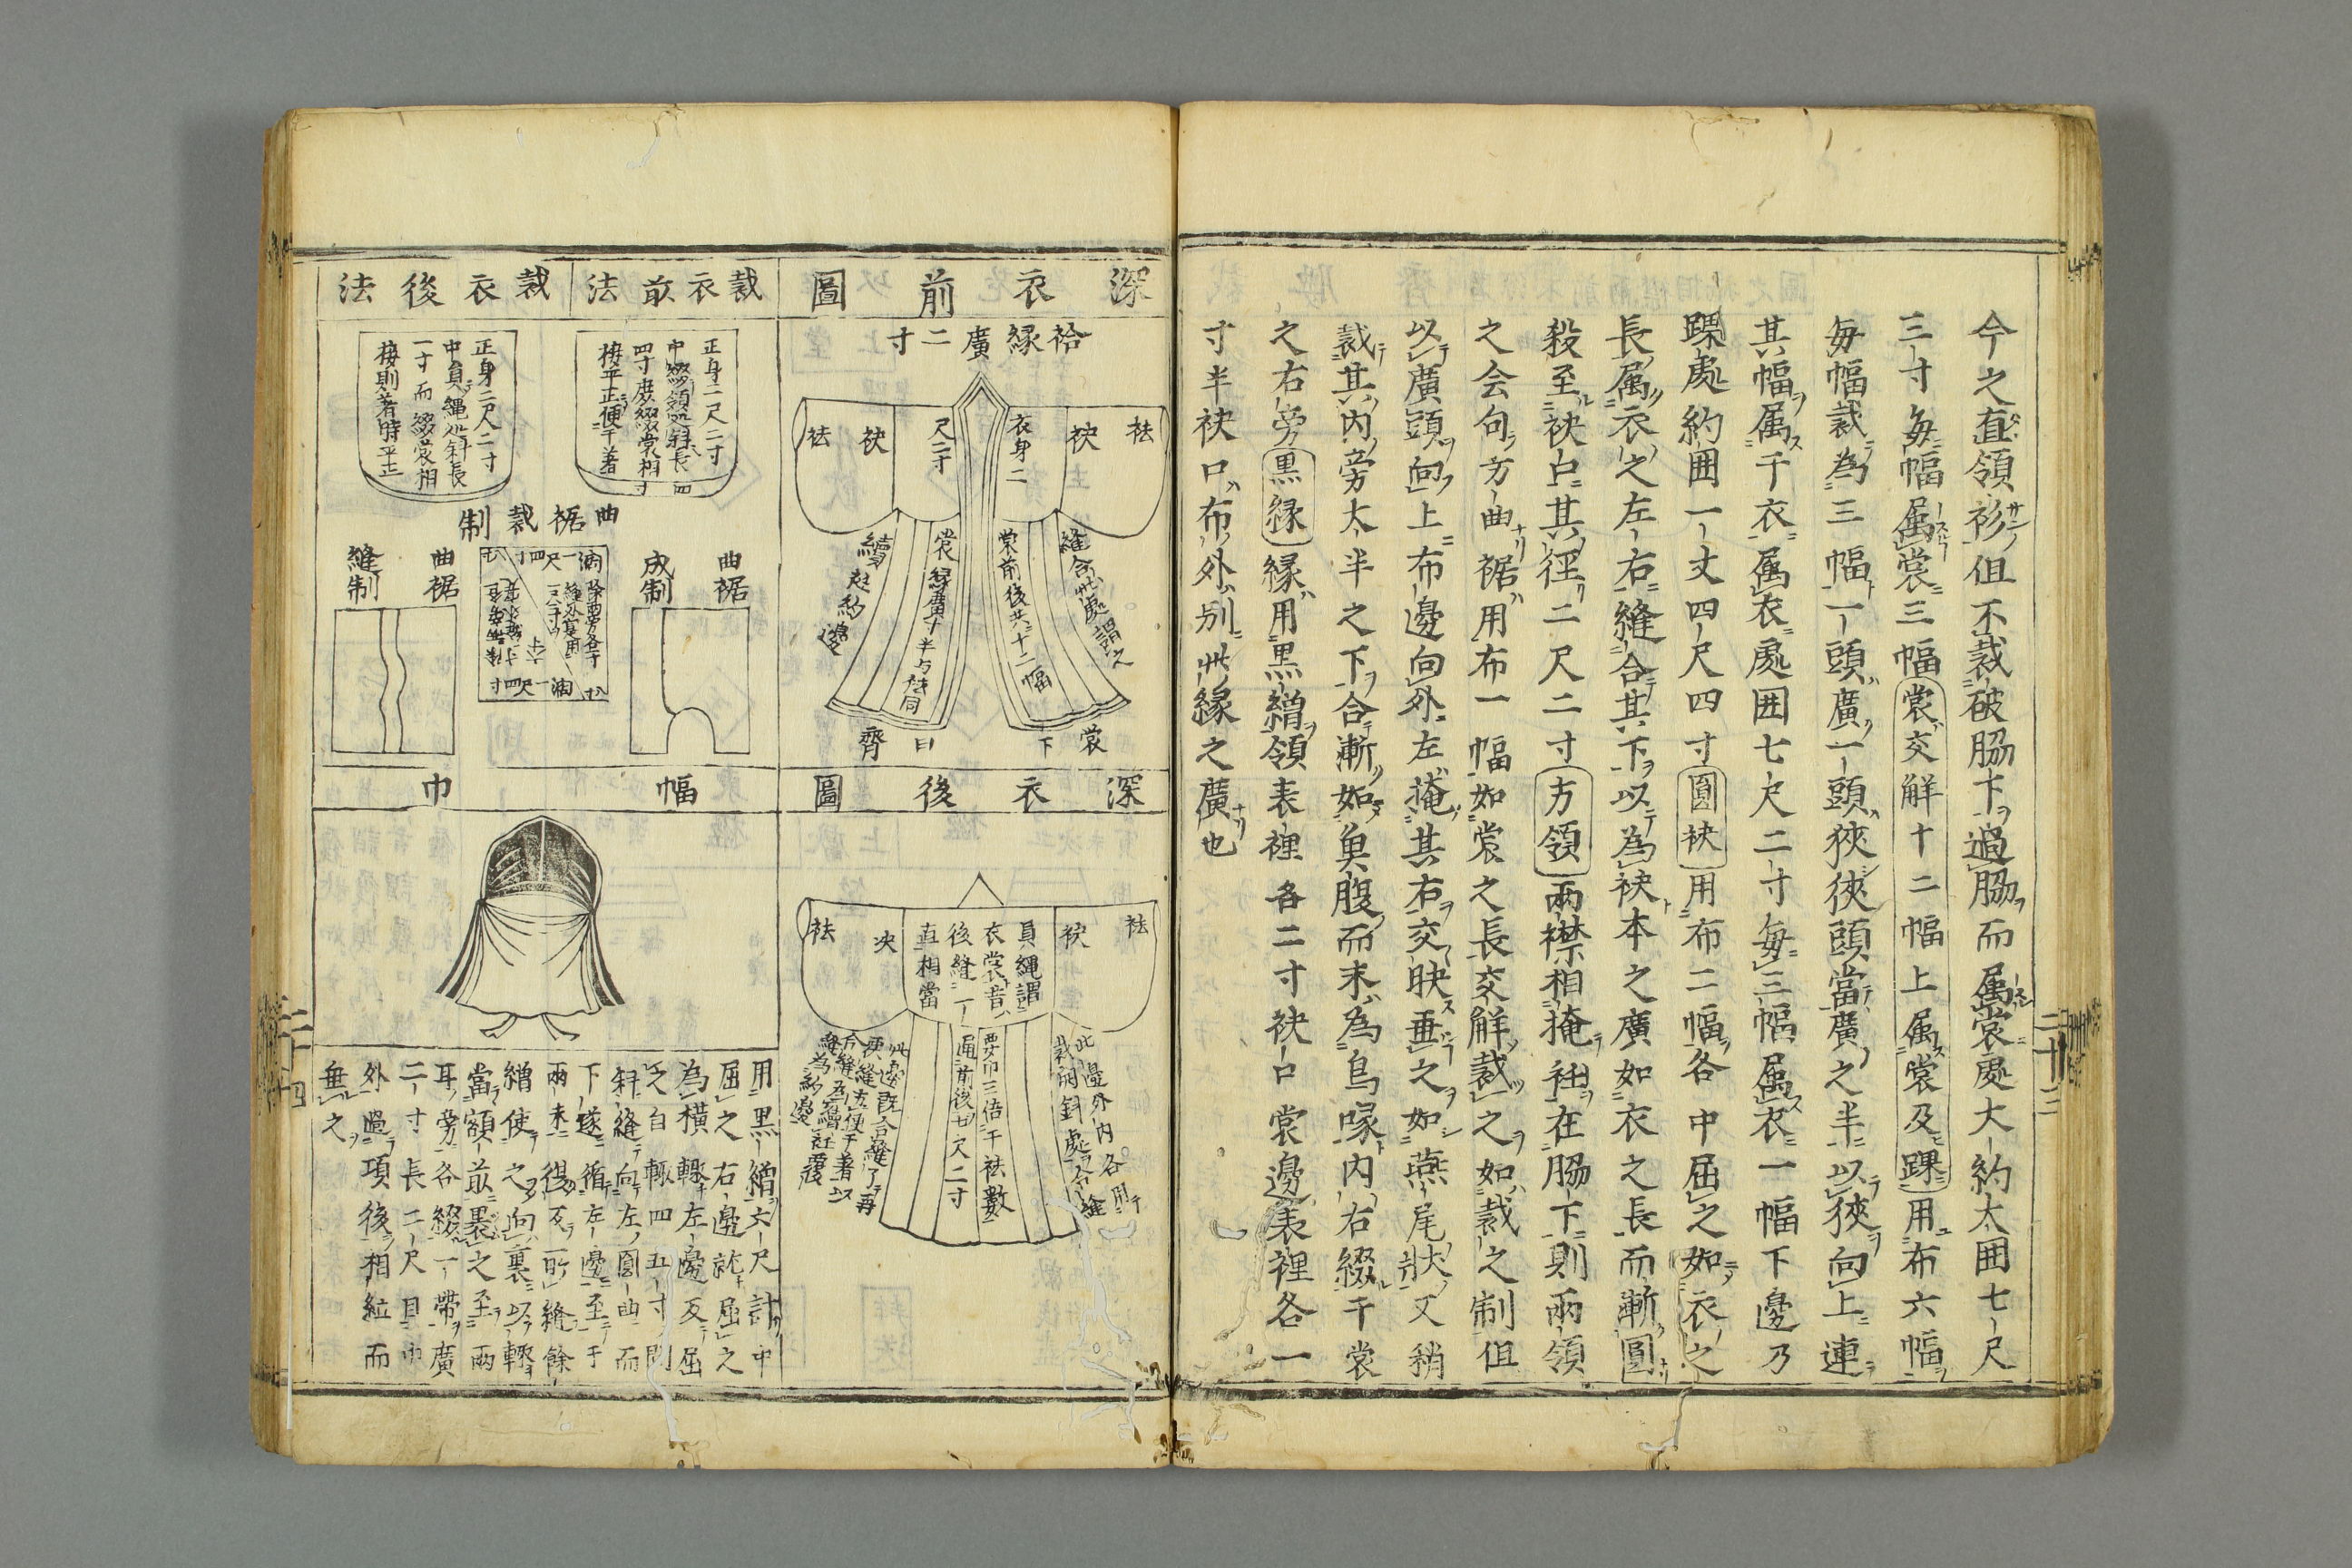 今之直領衫但不裁破脇下過脇而属裳處大約太囲七尺
三寸毎幅属裳三幅裳交解十二幅上属裳及踝用布六幅
毎幅裁為三幅一頭廣一頭狹狹頭當廣之半以狹向上連
其幅属于衣属衣處囲七尺二寸毎三幅属衣一幅下邊乃
踝處約囲一丈四尺四寸圓袂用布二幅各中屈之如衣之
長属衣之左右縫合其下以為袂本之廣如衣之長而漸圓
殺至袂口其徑二尺二寸方領兩襟相掩衽在脇下則兩領
之会句方曲裾用布一幅如裳之長交觧裁之如裁之制但
以廣頭向上布邊向外左掩其右交映垂之如燕尾状又稍
裁其内旁太半之下合漸如魚腹而末為鳥喙内右綴于裳
之右旁黒縁縁用黒繒領表裡各二寸袂口裳邊表裡各一
寸半袂口布外別此縁之廣也
二十三
深衣前圖
袷緣廣二寸
袪
袂
衣身二
尺二寸
袂
袪
縫合此處謂之
裳前後共十二幅
裳縁廣寸半与袪同
續衽鈎邊
裳下曰齊
深衣後圖
袪
袂
負縄謂
衣裳背
後縫一
直相當
袂
袪
此邊外内各用
裁制斜處合縫
要巾三倍于袪數
圍前後廿尺二寸
此邊既合縫了再
便縫左便于著以
方縫為續衽覆
縫為鈎邊
裁衣前法
正身二尺二寸
中綴領処斜長
四寸度綴裳相
接平正便于著
四寸
裁衣後法
正身二尺二寸
中負縄処斜長
一寸而綴裳相
接則著時平正
曲裾裁制
曲裾成制
曲裾縫制
幅巾
用黒繒六尺計中
屈之右邊就屈之
為横㡇左邊反屈
之自㡇四五寸間
斜縫向左圓曲而
下遂循左邊至于
兩末復反所縫餘
繒使之向裏以㡇
當額前裹之至兩
耳旁各綴一帶廣
二寸長二尺自巾
外過項後相結而
垂之
二十四